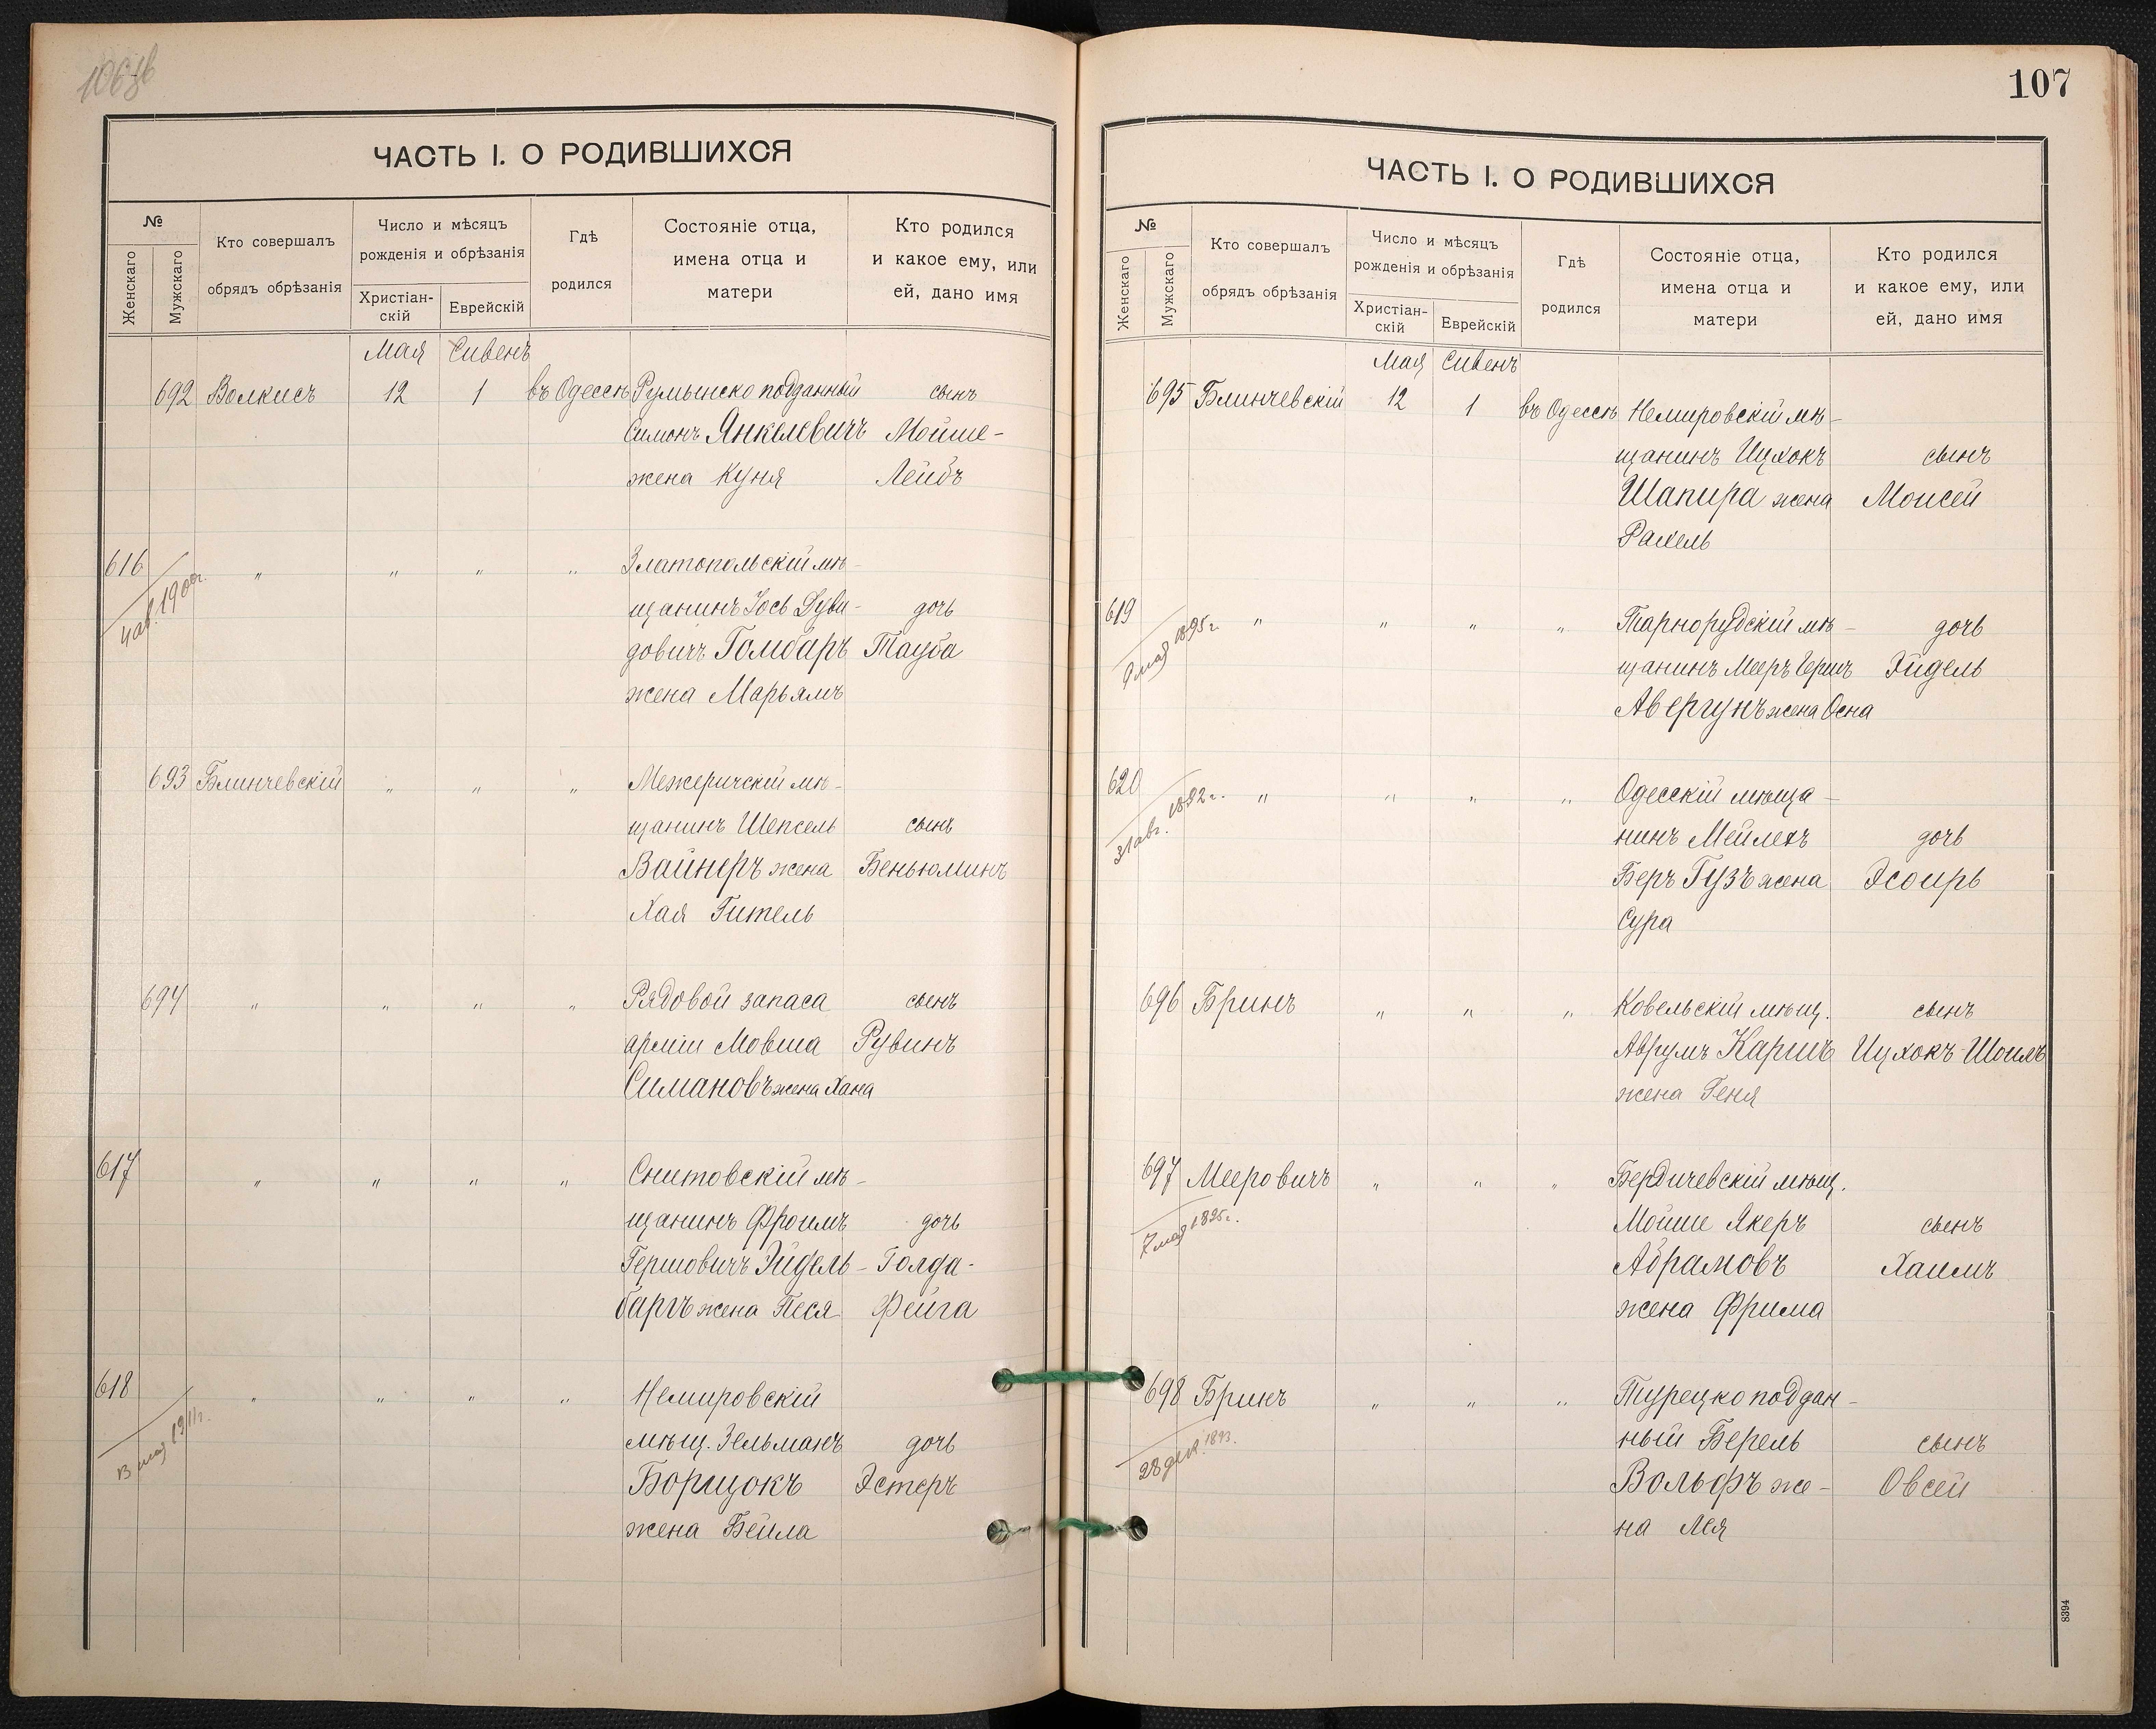 106 об
ЧАСТЬ I. О РОДИВШИХСЯ
№
Женскаго
Мужскаго
Кто совершалъ
обрядъ обрѣзанія
Число и мѣсяцъ
рожденія и обрѣзанія
Христіан-
скій
Еврейскій
Гдѣ
родился
Состояніе отца,
имена отца и
матери
Кто родился
и какое ему, или
ей, дано имя
Мая Сивенъ
692 Волкисъ 12 1 въ Одессѣ Румынско подданный сынъ
Симонъ Янкелевичъ Мойше-
жена Куня Лейбъ
616 " " " " Златопольскій мѣ-
4 ав. 1900г.
щанинъ Іось Дуви- дочь
довичъ Гомбаръ Тауба
жена Марьямъ
693 Блинчевскій " " " Межеричскій мѣ-
щанинъ Шепсель сынъ
Вайнеръ жена Беньюминъ
Хая Гитель
694 " " " " Рядовой запаса сынъ
арміи Мовша Рувинъ
Симановъ жена Хана
617 " " " " Снитовскій мѣ-
щанинъ Фроимъ дочь
Гершовичъ Эйдель- Голда-
баргъ жена Песя Фейга
618 " " " " Немировскій
13 мая 1911г.
мѣщ. Зельманъ дочь
Борщокъ Эстеръ
жена Бейла
107
ЧАСТЬ I. О РОДИВШИХСЯ
№
Женскаго
Мужскаго
Кто совершалъ
обрядъ обрѣзанія
Число и мѣсяцъ
рожденія и обрѣзанія
Христіан-
скій
Еврейскій
Гдѣ
родился
Состояніе отца,
имена отца и
матери
Кто родился
и какое ему, или
ей, дано имя
Мая Сивенъ
695 Блинчевскій 12 1 въ Одессѣ Немировскій мѣ-
щанинъ Ицхокъ сынъ
Шапира жена Моисей
Рахель
619 " " " " Тарнорудскій мѣ- дочь
9 мая 1895г.
щанинъ Мееръ Гершъ Эйдель
Авергунъ жена Осна
620 " " " " Одесскій мѣща-
31 авг. 1892г.
нинъ Мейлехъ дочь
Беръ Гузъ жена Эсѳирь
Сура
696 Бринъ " " " Ковельскій мѣщ. сынъ
Аврумъ Каршъ Ицхокъ-Шоилъ
жена Геня
697 Мееровичъ " " " Бердичевскій мѣщ.
7 мая 1895г.
Мойше Якеръ сынъ
Абрамовъ Хаимъ
жена Фрима
698 Бринъ " " " Турецко поддан-
28 дек. 1893.
ный Берель сынъ
Вольфъ же- Овсей
на Лея
8394